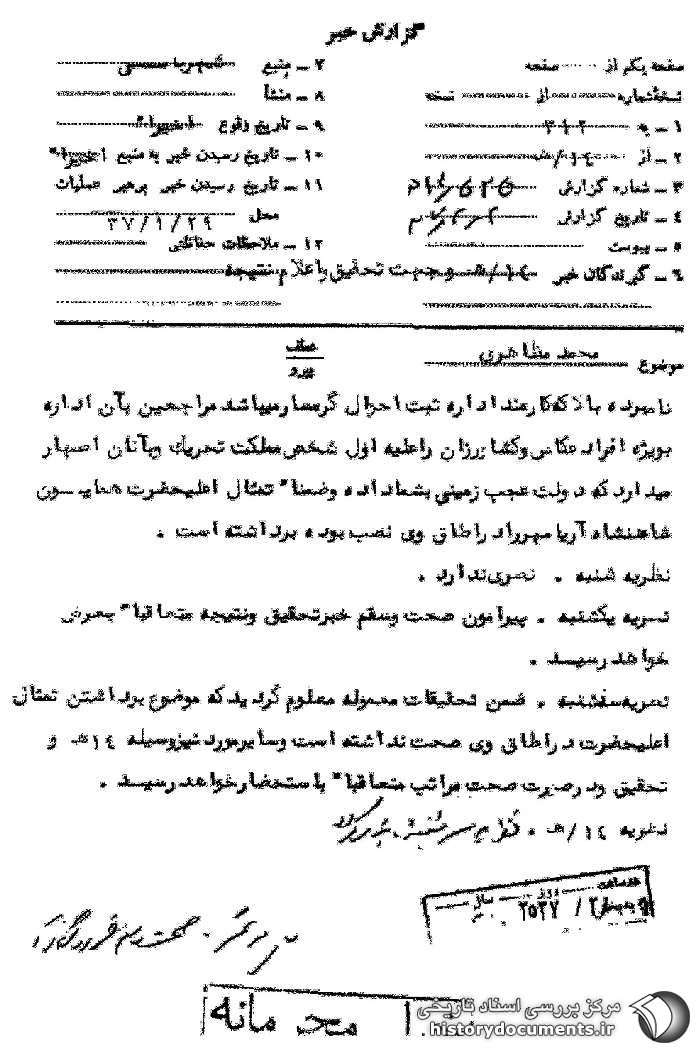 گزارش خبر
صفحه یکم از ..... صفحه
نسخهٔ شماره ....... از ....... نسخه
۱ ـ به ۳۱۲
۲ ـ از ۱۴/ﻫ
۳ ـ شماره گزارش
۴ ـ تاریخ گزارش
۵ ـ پیوست
۶ ـ گیرندگان خبر ۱۴/ﻫ و جهت تحقیق و اعلام نتیجه
۷ ـ منبع شهربا
۸ ـ منشأ
۹ ـ تاریخ وقوع اخیرا"
۱۰ ـ تاریخ رسیدن خبر به منبع اخیرا"
۱۱ ـ تاریخ رسیدن خبر برهبر عملیات
محل ۳۷/۱/۲۹
۱۲ ـ ملاحظات حفاظتی
موضوع محمد مظاهری
عطف
پیرو
نامبرده بالا که کارمند اداره ثبت احوال گرمسار میباشد مراجعین بآن اداره
بویژه افراد عکاس و کشاورزان را علیه اول شخص مملکت تحریک و بآنان اظهار
میدارد که دولت عجب زمینی بشما داده و ضمنا" تمثال اعلیحضرت همایـون
شاهنشاه آریا مهر را در اطاق وی نصب بوده برداشته است .
نظریه شنبه . نظری ندارد .
نظریه یکشنبه . پیرامون صحت و سقم خبر تحقیق و نتیجه متعاقبا" بعرض
خواهد رسیـد .
نظریه سه‌شنبه . ضمن تحقیقات معموله معلوم گردید که موضوع برداشتن تمثال
اعلیحضرت در اطاق وی صحت نداشته است و سایر مورد نیز وسیله ۱۴ ﻫ و
تحقیق و در صورت صحت مراتب متعاقبا" باستحضار خواهد رسیـد .
نظریه ۱۴/ﻫ . نظریه سه شنبه
۲۵۳۷
محرمانه
مرکز بررسی اسناد تاریخی
historydocuments.ir